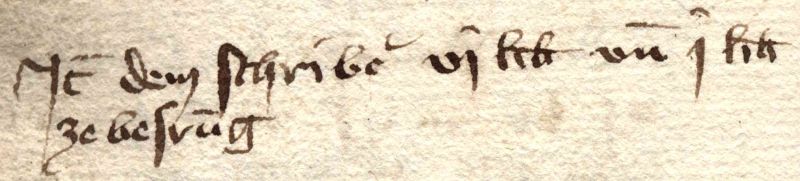 Jt̄ dem schribē vj lib vn̄ j lib
ze besrūg